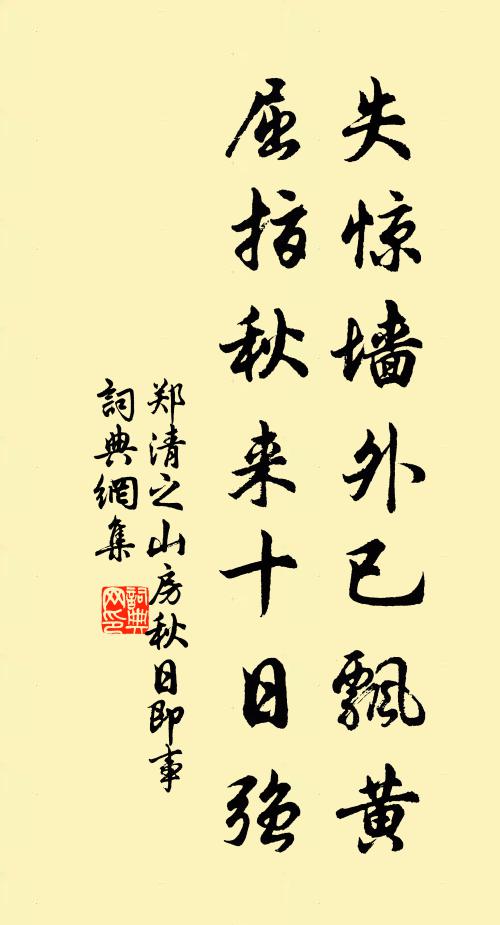 失惊墙外已飘黄
屈指秋来十日强
郑清之山房秋日即事
詞典網集
詞典网印